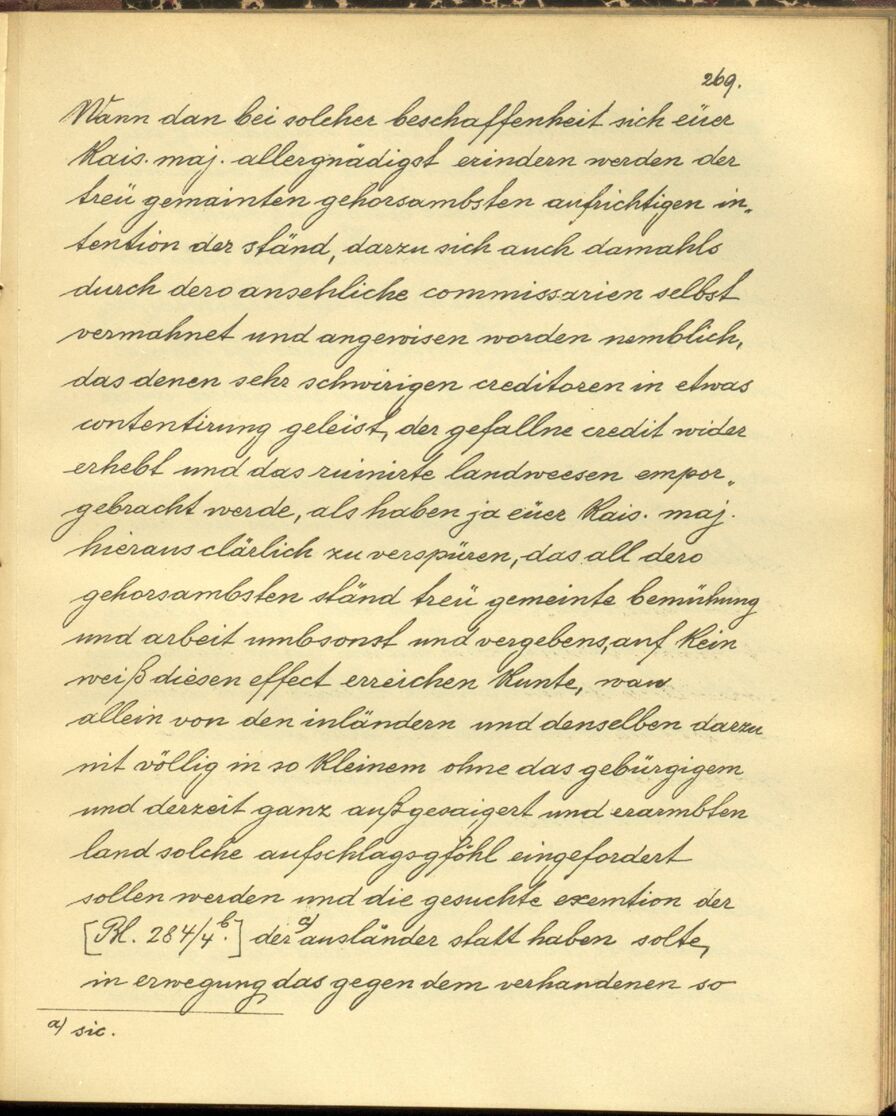 269.
Wann dan bei solcher beschaffenheit sich eüer
Kais. maj. allergnädigst erindern werden der
treü gemainten gehorsambsten aufrichtigen in„
tention der ständ, darzu sich auch damahls
durch dero ansehliche commissarien selbst
vermahnet und angewisen worden nemblich,
das denen sehr schwirigen creditoren in etwas
contentirung geleist, der gefallne credit wider
erhebt und das ruinirte landweesen empor„
gebracht werde, als haben ja eüer Kais. maj.
hieraus clärlich zu verspüren, das all dero
gehorsambsten ständ treü gemeinte bemühung
und arbeit umbsonst und vergebens, auf kein
weiß diesen effect erreichen kunte, wan
allein von den inländern und denselben darzu
nit völlig in so kleinem ohne das gebürgigem
und derzeit ganz außgesaigert und erarmbten
land solche aufschlagsgföhl eingefordert
sollen werden und die gesuchte exemtion der
[Bl. 284/4b.] der a) ausländer statt haben solte,
in erwegung das gegen dem verhandenen so
a) sic.